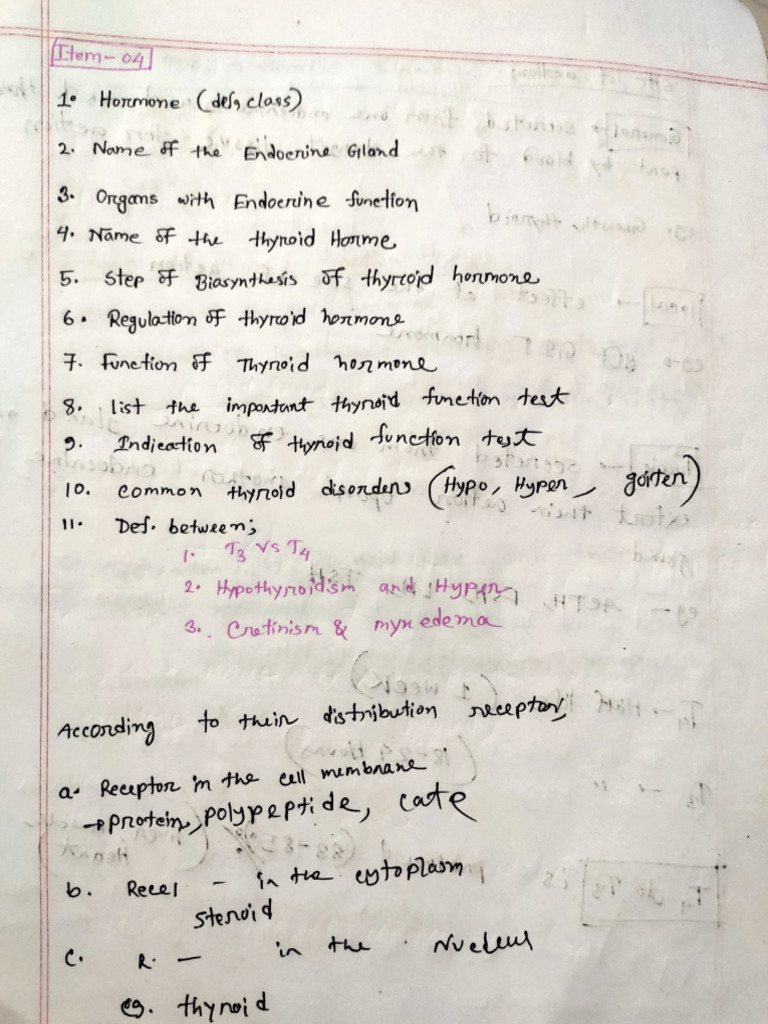 Item-04
1. Hormone (def, class)
2. Name of the Endocrine Gland
3. Organs with Endocrine function
4. Name of the thyroid Horme
5. Step of Biasynthesis of thyroid hormone
6. Regulation of thyroid hormone
7. Function of Thyroid hormone
8. list the important thyroid function test
9. Indication of thyroid function test
10. common thyroid disorders (Hypo, Hyper, goiter)
11. Def. between;
1. T3 vs T4
2. Hypothyroidism and Hyper
3. Cretinism & myxedema
According to their distribution receptor,
a. Receptor in the cell membrane
→ protein, polypeptide, cate
b. Recel - in the cytoplasm
steroid
c. R. — in the Nucleus
eg. thyroid